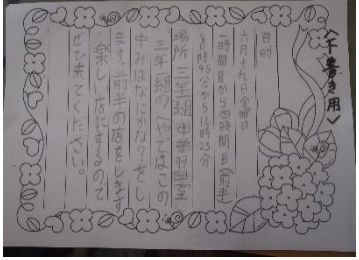 〈下書き用〉
日時
六月十九日金曜日
一時間目から四時間目(前半)
8時45分から12時25分
場所 三年 組 中学習室
三年 組のへやではこの
中みはなにかな?をし
ます。前半の店をします
楽しい店にするので
ぜひ来てください。